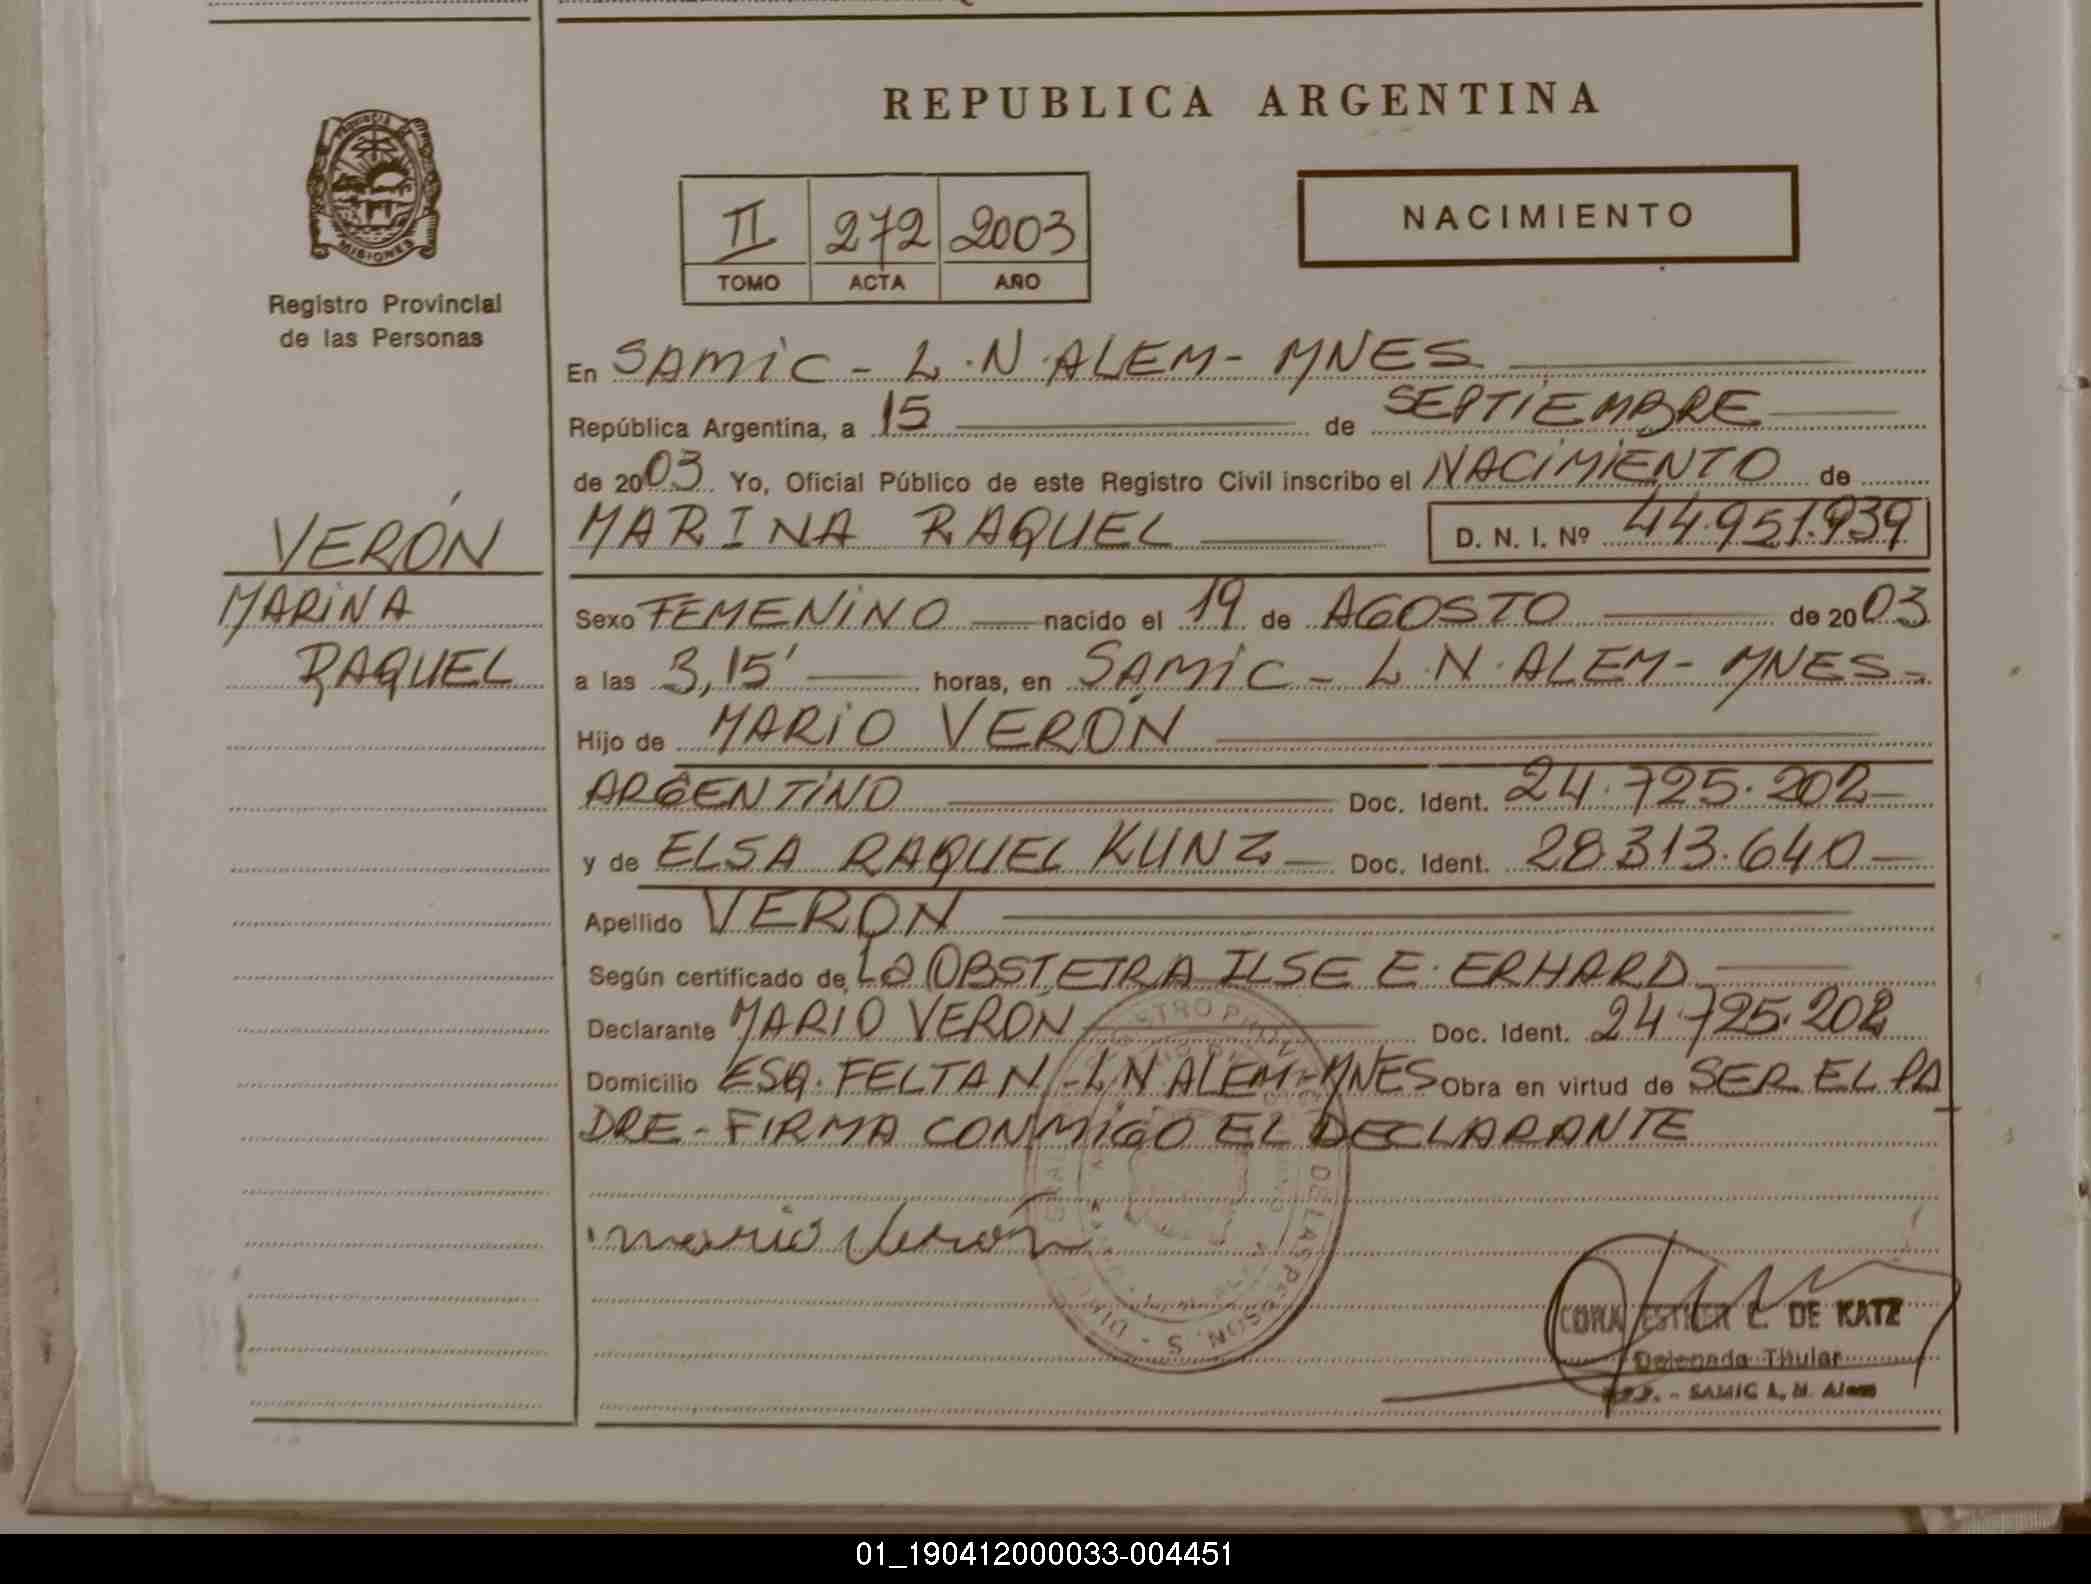 REPUBLICA ARGENTINA
PROVINCIA DE
MISIONES
Registro Provincial
de las Personas
II 272 2003
TOMO ACTA AÑO
NACIMIENTO
En SAMIC - L.N.ALEM - MNES
República Argentina, a 15 de SEPTIEMBRE
de 2003 Yo, Oficial Público de este Registro Civil inscribo el NACIMIENTO de
VERÓN
MARINA
RAQUEL
MARINA RAQUEL D. N. I. Nº 44.951.939
Sexo FEMENINO nacido el 19 de AGOSTO de 2003
a las 3,15' horas, en SAMIC - L.N.ALEM - MNES-
Hijo de MARIO VERÓN
ARGENTINO Doc. Ident. 24.725.202
y de ELSA RAQUEL KUNZ Doc. Ident. 28.313.640
Apellido VERON
Según certificado de LA OBSTETRA ILSE E. ERHARD
Declarante MARIO VERÓN Doc. Ident. 24.725.202
Domicilio ESQ. FELTAN - L.N ALEM - MNES Obra en virtud de SER EL PA
DRE - FIRMA CONMIGO EL DECLARANTE
mario Verón
DE LAS PERSONAS
CORA ESTHER C. DE KATZ
Delegada Titular
SAMIC L. N. Alem
01_190412000033-004451